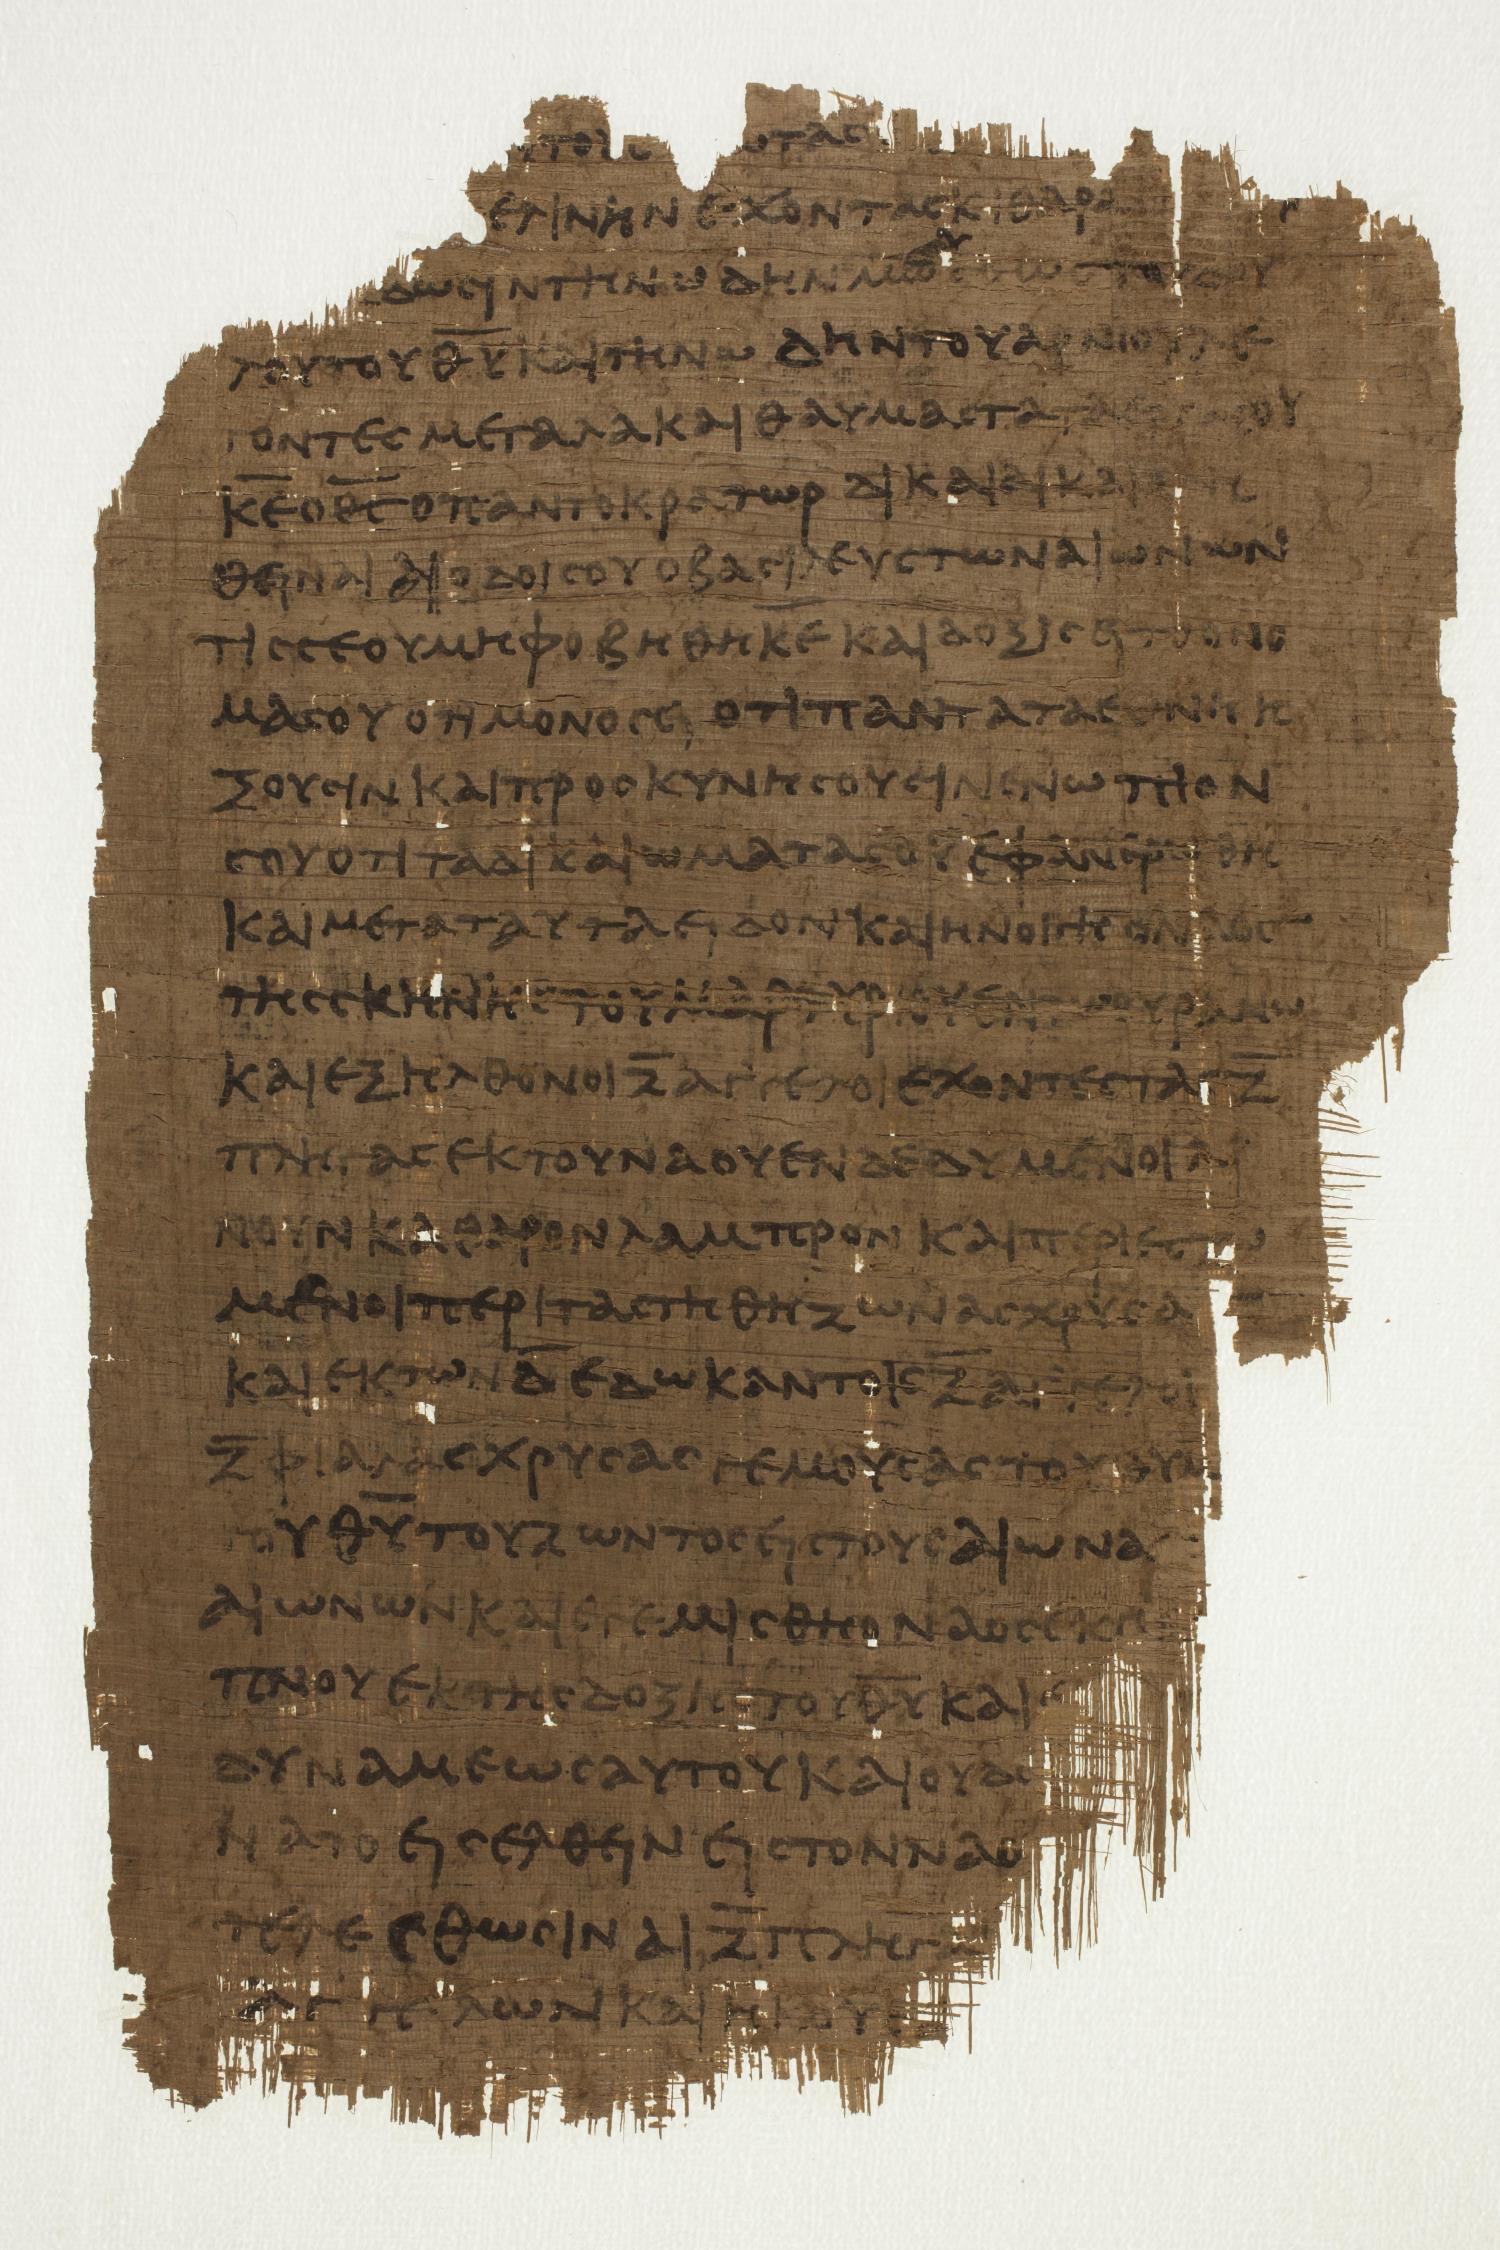 ΕΛΙΝΗΝ ΕΧΟΝΤΑϹ ΚΙΘΑΡΑ
ΔΩϹΙΝ ΤΗΝ ΩΔΗΝ ΜΩΥϹΕΩϹ ΤΟΥ ΔΟΥ
ΛΟΥ ΤΟΥ Θ̅Υ̅ ΚΑΙ ΤΗΝ ΩΔΗΝ ΤΟΥ ΑΡΝΙΟΥ ΛΕ
ΓΟΝΤΕϹ ΜΕΓΑΛΑ ΚΑΙ ΘΑΥΜΑϹΤΑ ΤΑ ΕΡΓΑ ϹΟΥ
Κ̅Ε̅ Ο Θ̅Ϲ̅ Ο ΠΑΝΤΟΚΡΑΤΩΡ ΔΙΚΑΙΑΙ ΚΑΙ
ΘΕΙΝΑΙ ΑΙ ΟΔΟΙ ϹΟΥ Ο ΒΑϹΙΛΕΥϹ ΤΩΝ ΑΙΩΝΩΝ
ΤΙϹ ϹΕ ΟΥ ΜΗ ΦΟΒΗΘΗ Κ̅Ε̅ ΚΑΙ ΔΟΞΙϹΕΙ ΤΟ ΟΝΟ
ΜΑ ϹΟΥ ΟΤΙ ΜΟΝΟϹ ΕΙ ΟΤΙ ΠΑΝΤΑ ΤΑ ΕΘΝΗ Η
ΞΟΥϹΙΝ ΚΑΙ ΠΡΟϹΚΥΝΗϹΟΥϹΙΝ ΕΝΩΠΙΟΝ
ϹΟΥ ΟΤΙ ΤΑ ΔΙΚΑΙΩΜΑΤΑ ϹΟΥ ΕΦΑΝΕΡΩΘΗ
ΚΑΙ ΜΕΤΑ ΤΑΥΤΑ ΕΙΔΟΝ ΚΑΙ ΗΝΟΙΓΗ Ο ΝΑΟϹ
ΤΗϹ ϹΚΗΝΗϹ ΤΟΥ ΜΑΡΤΥΡΙΟΥ ΕΝ ΤΩ ΟΥΡΑΝΩ
ΚΑΙ ΕΞΗΛΘΟΝ ΟΙ Ζ̅ ΑΓΓΕΛΟΙ ΕΧΟΝΤΕϹ ΤΑϹ Ζ̅
ΠΛΗΓΑϹ ΕΚ ΤΟΥ ΝΑΟΥ ΕΝΔΕΔΥΜΕΝΟΙ ΛΙ
ΝΟΥΝ ΚΑΘΑΡΟΝ ΛΑΜΠΡΟΝ ΚΑΙ ΠΕΡΙΕΖΩ
ΜΕΝΟΙ ΠΕΡΙ ΤΑ ϹΤΗΘΗ ΖΩΝΑϹ ΧΡΥϹΑ
ΚΑΙ ΕΚ ΤΩΝ Δ̅ ΕΔΩΚΑΝ ΤΟΙϹ Ζ̅ ΑΓΓΕΛΟΙ
Ζ̅ ΦΙΑΛΑϹ ΧΡΥϹΑϹ ΓΕΜΟΥϹΑϹ ΤΟΥ ΘΥΜ
ΤΟΥ Θ̅Υ̅ ΤΟΥ ΖΩΝΤΟϹ ΕΙϹ ΤΟΥϹ ΑΙΩΝΑ
ΑΙΩΝΩΝ ΚΑΙ ΕΓΕΜΙϹΘΗ Ο ΝΑΟϹ ΕΚ
ΠΝΟΥ ΕΚ ΤΗϹ ΔΟΞΗϹ ΤΟΥ Θ̅Υ̅ ΚΑΙ
ΔΥΝΑΜΕΩϹ ΑΥΤΟΥ ΚΑΙ ΟΥΔΕ
ΝΑΤΟ ΕΙϹΕΛΘΕΙΝ ΕΙϹ ΤΟΝ ΝΑΟ
ΤΕΛΕϹΘΩϹΙΝ ΑΙ Ζ̅ ΠΛΗΓΑ
ΑΓΓΕΛΩΝ ΚΑΙ ΗΚΟΥ